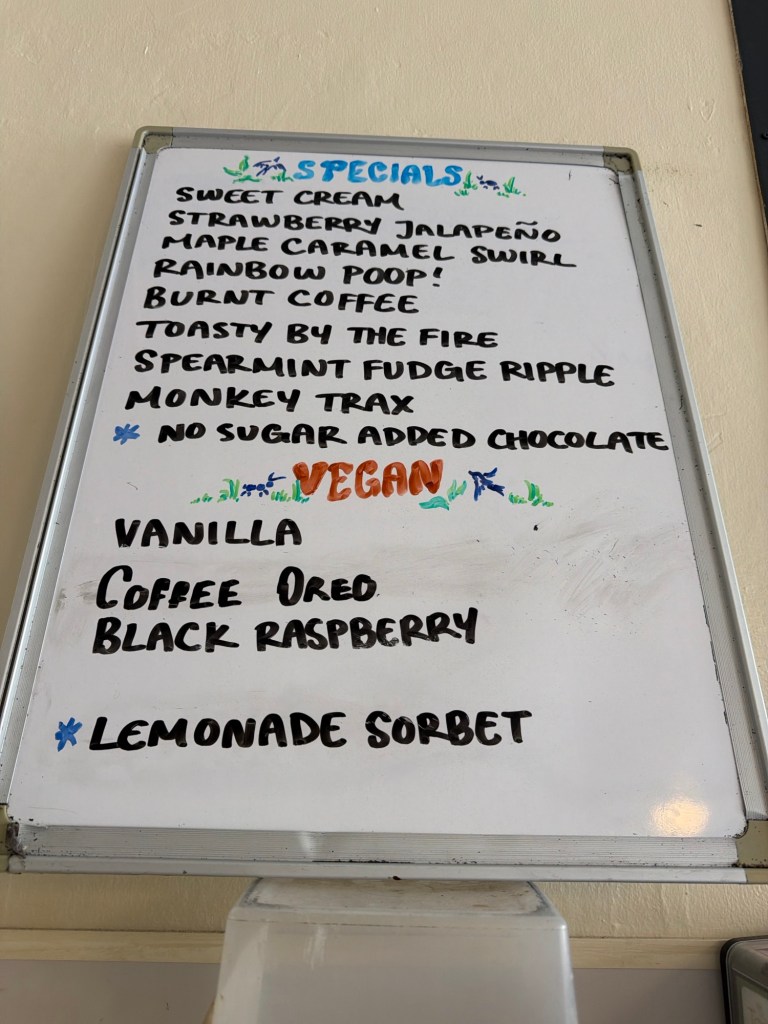 SPECIALS
SWEET CREAM
STRAWBERRY JALAPEÑO
MAPLE CARAMEL SWIRL
RAINBOW POOP!
BURNT COFFEE
TOASTY BY THE FIRE
SPEARMINT FUDGE RIPPLE
MONKEY TRAX
* NO SUGAR ADDED CHOCOLATE
VEGAN
VANILLA
COFFEE OREO
BLACK RASPBERRY
* LEMONADE SORBET